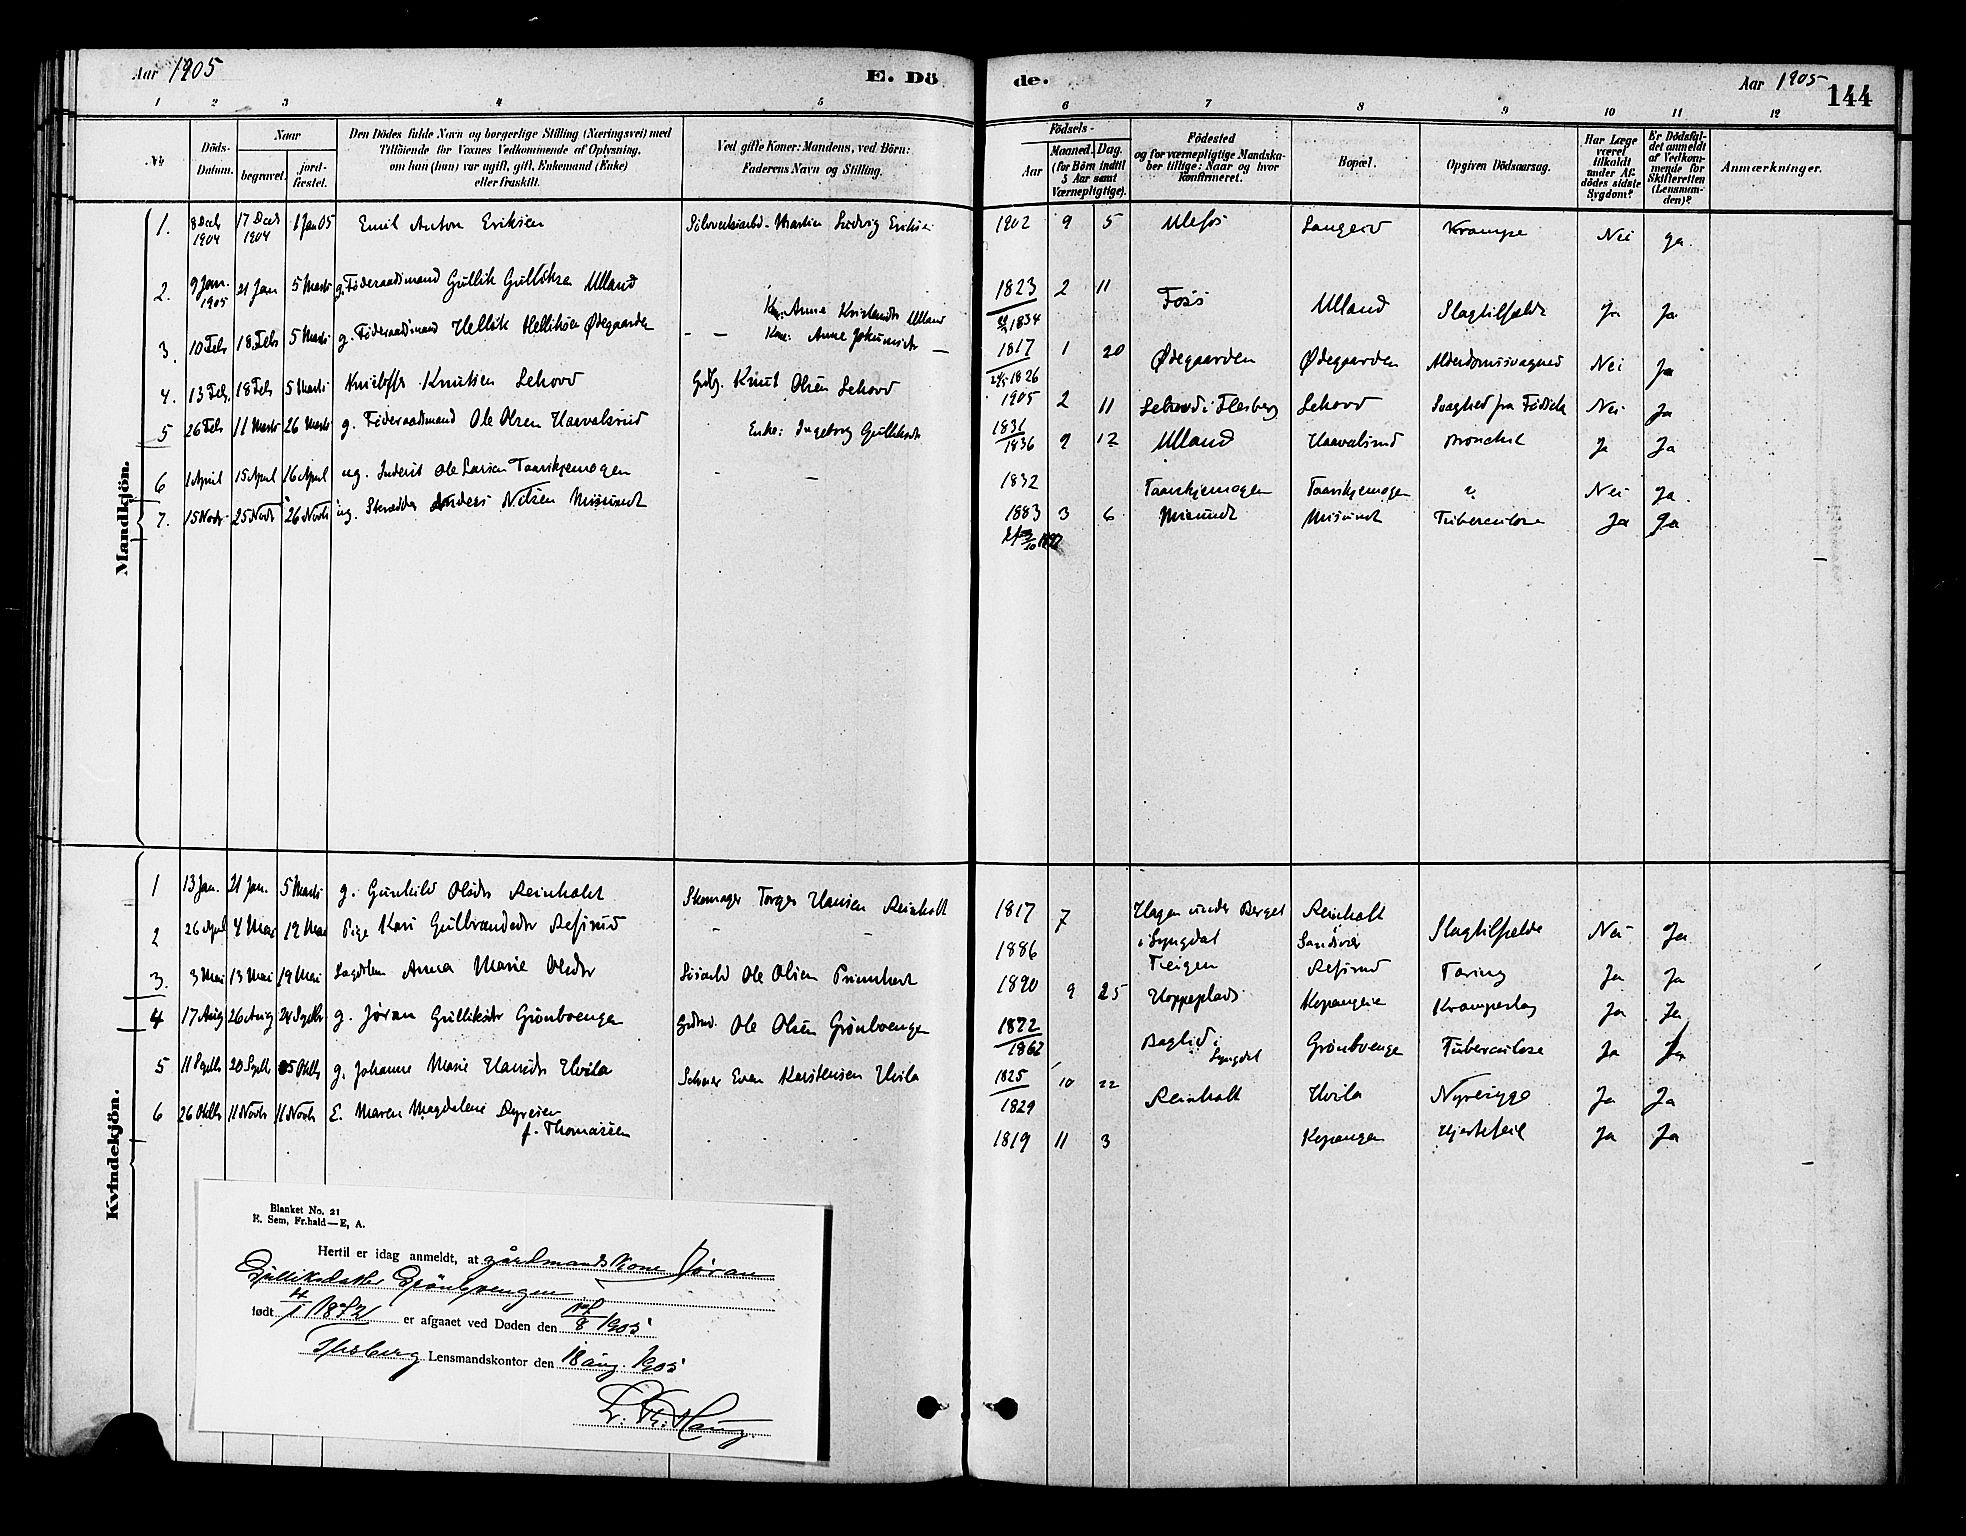 Aar 1905 E. Dö de. Aar 1905 144
1 2 3 4 5 6 7 8 9 10 11 12
No.
Döds-Datum.
Naar
begravet.
jordfæstet.
Den Dödes fulde Navn og borgerlige Stilling (Næringsvei) med
Tilföiende for Voxnes Vedkommende af Oplysning,
om han (hun) var ugift, gift, Enkemand (Enke)
eller fraskilt.
Ved gifte Koner: Mandens, ved Börn:
Faderens Navn og Stilling.
Födsels-
Aar
Maaned. Dag.
(for Börn indtil
5 Aar samt
Værnepligtige).
Födested
og for værnepligtige Mandskaber tillige: Naar og hvor
konfirmeret.
Bopæl.
Opgiven Dödsaarsag.
Har Læge
været
tilkaldt
under Afdödes sidste
Sygdom?
Er Dödsfaldet anmeldt
af Vedkommende for
Skifteretten
(Lensmanden)?
Anmærkninger.
Mandkjön.
1. 8 Decb 1904 17 Decb 1904 1 Jan 05 Emil Anton Eriksen Martin Ludvig Eriksen 1902 9 5 Ulefos Langerud Krampe Nei Ja
2. 9 Jan. 1905 21 Jan 5 Marts g. Föderaadsmand Gullik Gulliksen Ulland Kone: Anne Ulland 1823 2 11 1834 Foss Ulland Slagtilfælde Ja Ja
3. 10 Feb 18 Feb 5 Marts g. Föderaadsmand Hellik Helliksen Ødegaarden Kone: Anne 1817 1 20 1826 Ødegaarden Ødegaarden Alderdomssvaghed Nei Ja
4. 13 Feb. 18 Feb 5 Marts Knutsen Lehovd Knut Olsen Lehovd 1905 2 11 Lehovd i Flesberg Lehovd Svaghed fra Födsel Nei Ja
5 26 Feb 11 Marts 26 Marts g. Föderaadsmand Ole Olsen Haavalsrud Enke: Ingeborg Gulliksdr 1831 1836 9 12 Ulland Haavalsrud Bronchit Ja Ja
6 1 April 15 April 16 April ug. Inderst Ole Larsen Taarskjemogen 1832 Taarskjemogen Taarskjemogen ? Nei Ja
7. 15 Novb 25 Novb 26 Novb ug. Skrædder Anders Nilsen Misundt 1883 3 6 Misundt Misundt Tuberculose Ja Ja
Kvindekjön.
1 13 Jan. 21 Jan. 5 Marts g. Gunhild Olsdr Reinholt Skomager Torger Hansen Reinholt 1817 7 Hagen under Berget i Lyngdal Reinholt Sandsvær Slagtilfælde Nei Ja
2 26 April 4 Mai 19 Mai Pige Kari Gulbrandsdr Refsrud 1886 Teigen Refsrud Tæring Ja Ja
3. 3 Mai 13 Mai 19 Mai Anna Marie Olsdr Ole Olsen 1890 9 25 Hoppeplads Kopangen Krampeslag Ja Ja
4 17 Aug 26 Aug 24 Septb g. Jøran Gulliksdr Grönbvengen Gbrd. Ole Olsen Grönbvengen 1872 1862 i Lyngdal Grönbvengen Tuberculose Ja Ja
5 11 Septb 20 Septb 15 Oktb g. Johanne Marie Hansdr Hvila Even Karstensen Hvila 1825 1829 10 22 Reinholt Hvila Nyresyge Ja Ja
6 26 Oktb 11 Novb 11 Novb E. Maren Magdalene Dyresen
f. Thomassen 1819 11 3 Kopangen Hjertefeil Ja Ja
Blanket No. 21
K. Sem, Fr.hald—E, A.
Hertil er idag anmeldt, at gårdmandskone Jöran
Gulliksdatter Grönbvengen
født 4/1 1872 er afgaaet ved Døden den 17/8 1905
Flesberg Lensmandskontor den 18 aug. 1905